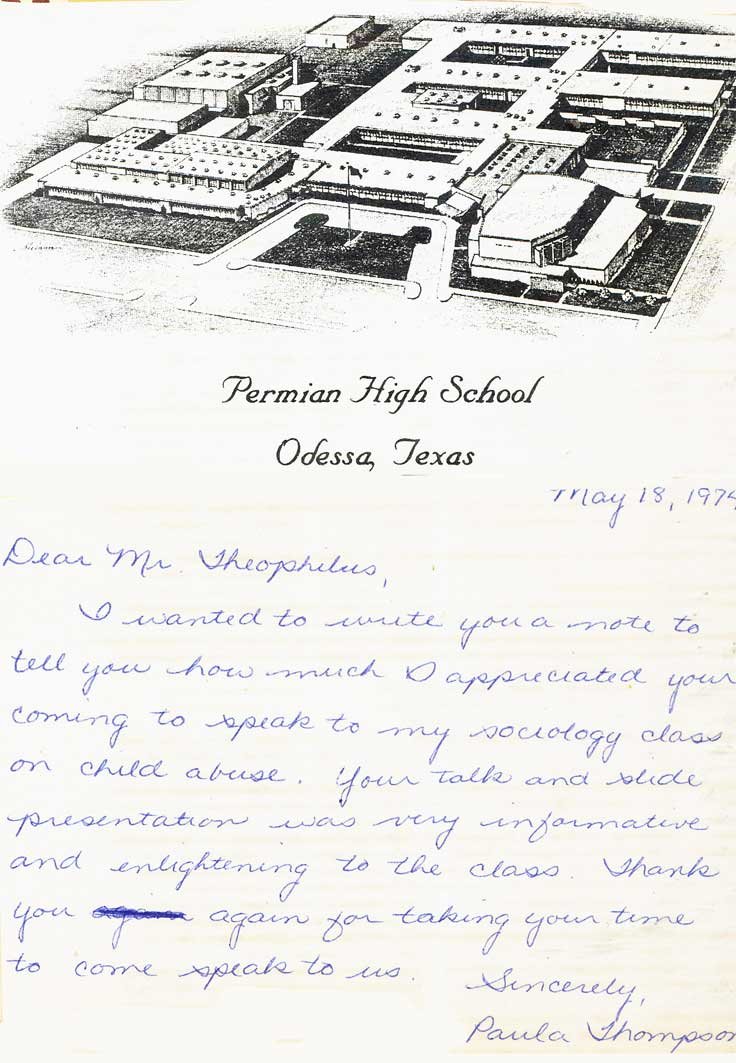 Permian High School
Odessa, Texas
May 18, 1974
Dear Mr. Theophilus,
I wanted to write you a note to
tell you how much I appreciated your
coming to speak to my sociology class
on child abuse. Your talk and slide
presentation was very informative
and enlightening to the class. Thank
you again for taking your time
to come speak to us.
Sincerely,
Paula Thompson